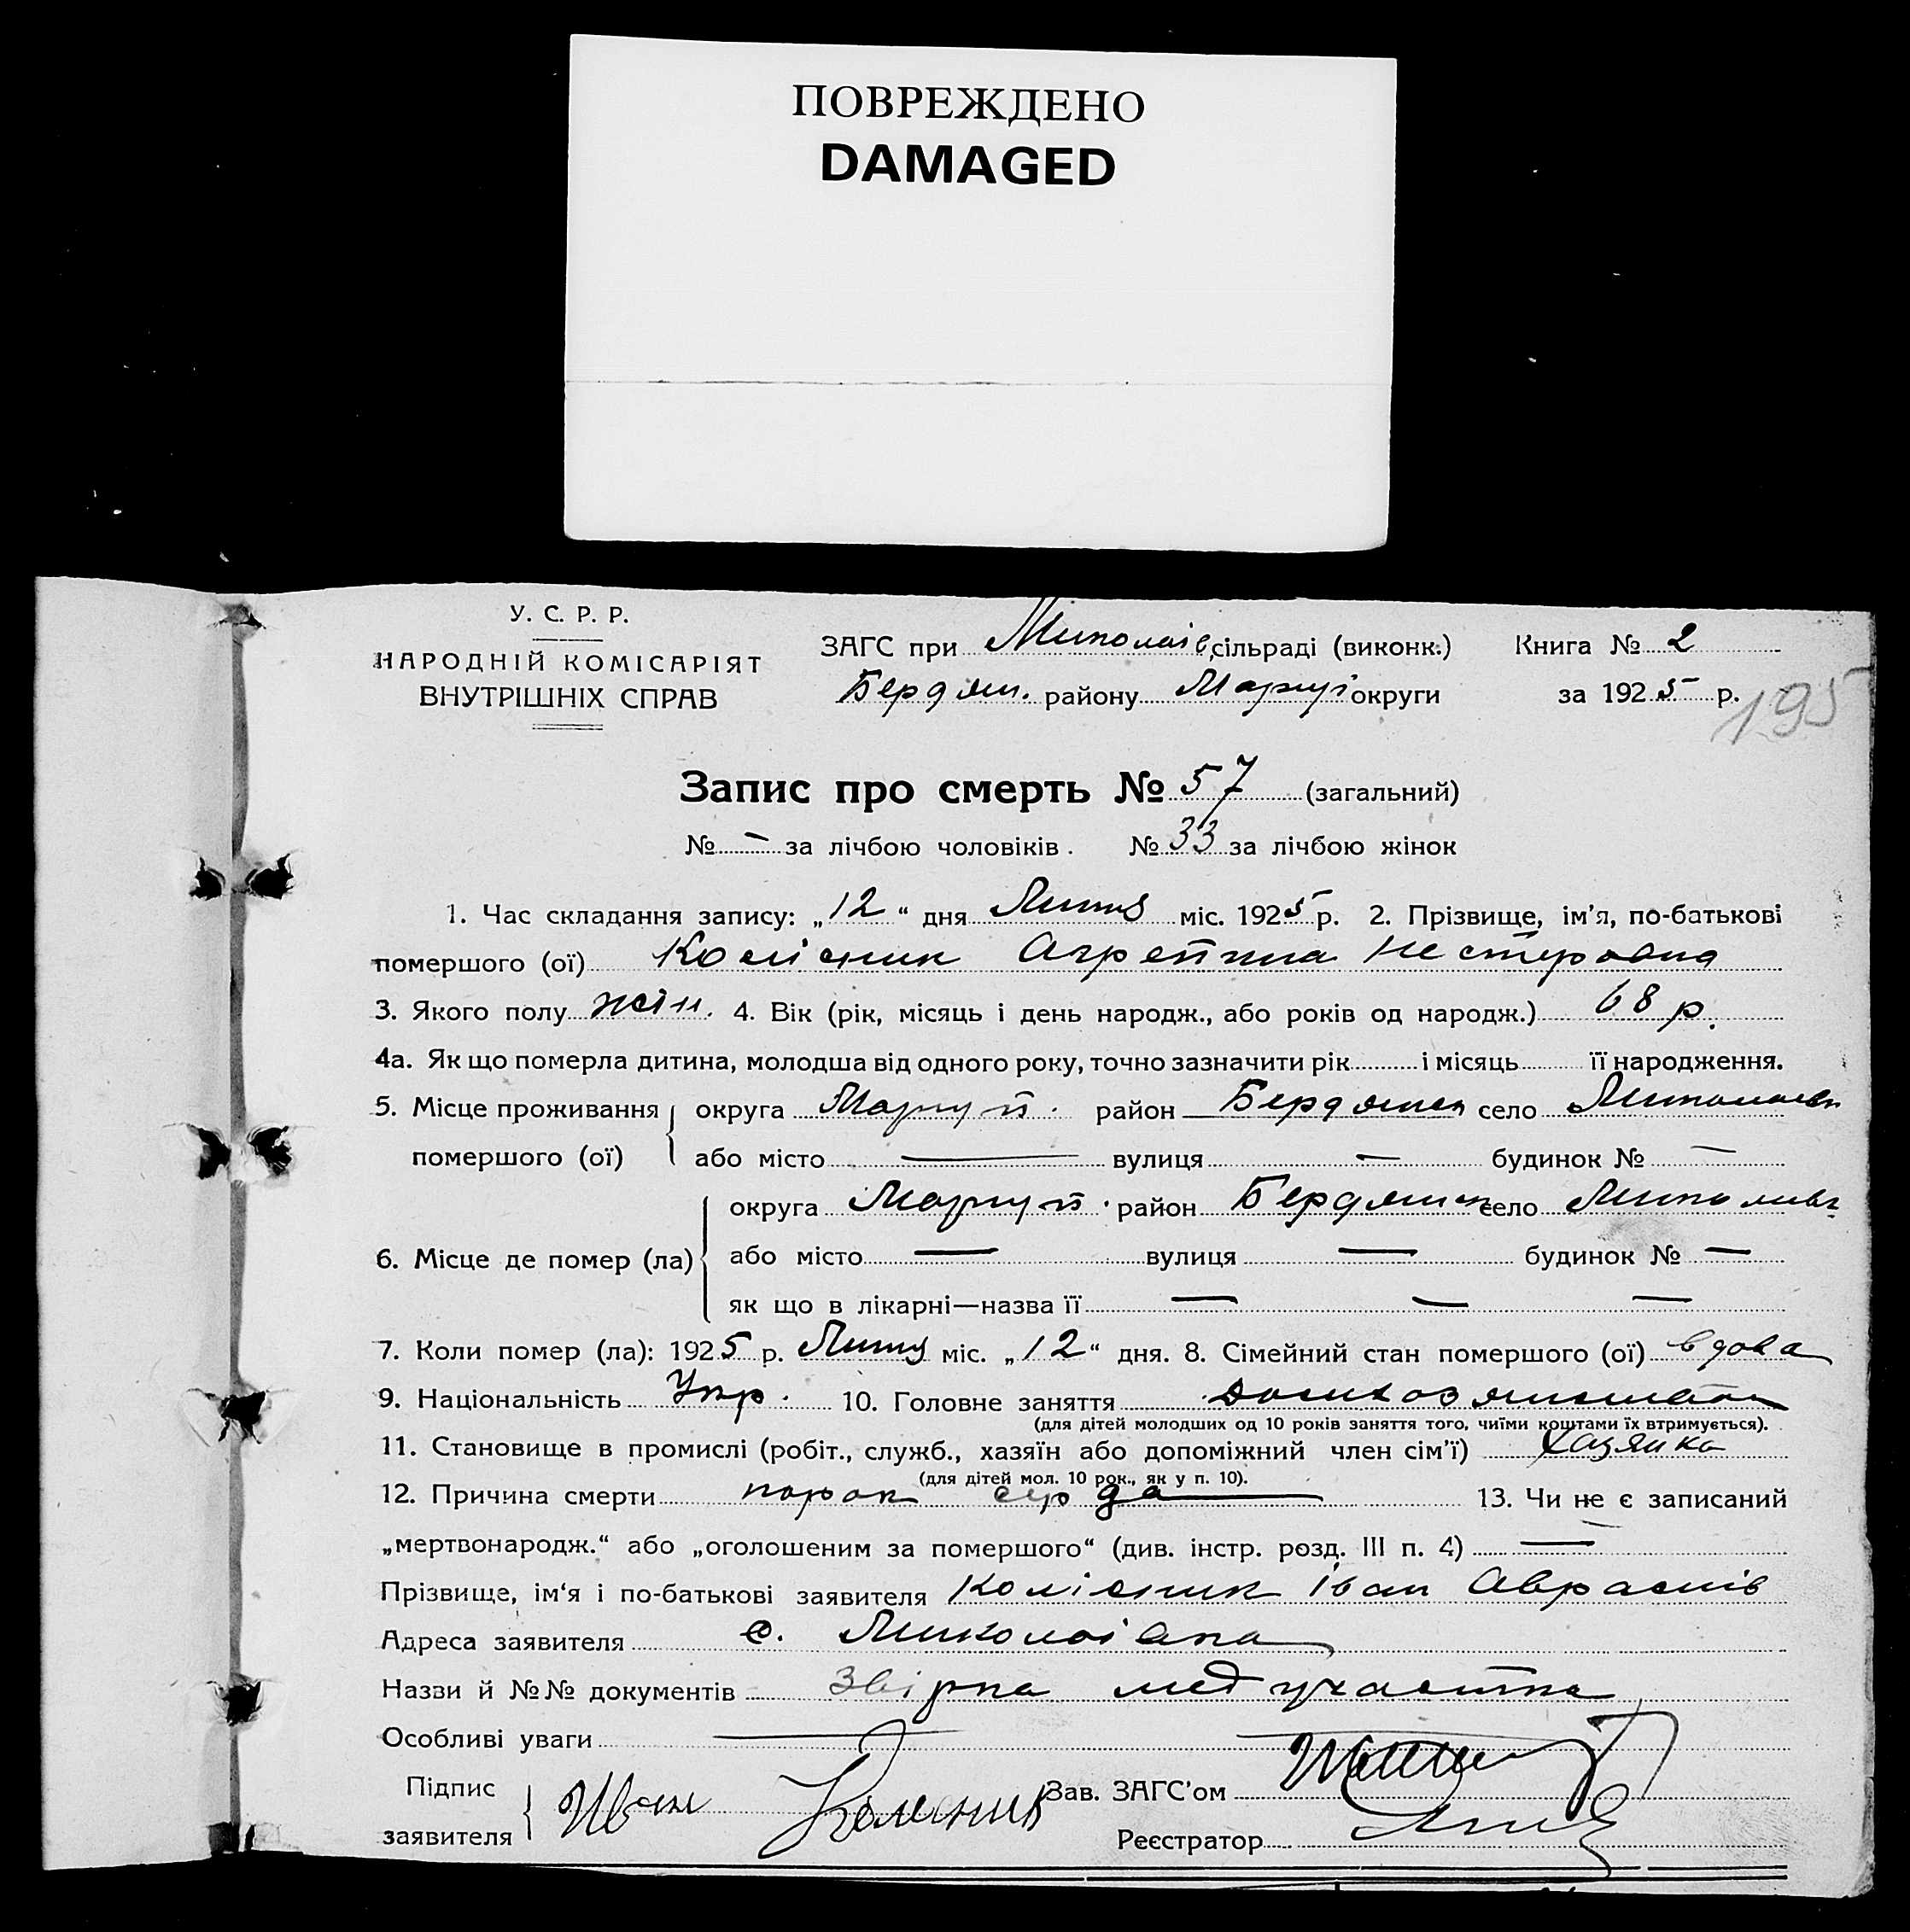 ПОВРЕЖДЕНО
DAMAGED
У. С. Р. Р.
НАРОДНІЙ КОМІСАРІЯТ
ВНУТРІШНІХ СПРАВ
ЗАГС при Миколаів. сільраді (виконк.)
Бердян. району Маріуп. округи
Книга № 2
за 1925 р.
195
Запис про смерть № 57 (загальний)
№ — за лічбою чоловіків. № 33 за лічбою жінок
1. Час складання запису: „12“ дня міс. 1925 р. 2. Прізвище, ім’я, по-батькові
помершого (ої) Колісник Агрепина Нестеровна
3. Якого полу жін. 4. Вік (рік, місяць і день народж., або років од народж.) 68 р.
4а. Як що померла дитина, молодша від одного року, точно зазначити рік і місяць її народження.
5. Місце проживання помершого (ої) округа Маріуп. район Бердянськ село
або місто — вулиця — будинок № —
6. Місце де помер (ла) округа Маріуп. район Бердянськ село
або місто — вулиця — будинок № —
як що в лікарні—назва її — — —
7. Коли помер (ла): 1925 р. міс. „12“ дня. 8. Сімейний стан помершого (ої) вдова
9. Національність Укр. 10. Головне заняття
(для дітей молодших од 10 років заняття того, чиїми коштами їх втримується).
11. Становище в промислі (робіт., служб., хазяїн або допоміжний член сім’ї) хазяйка
(для дітей мол. 10 рок., як у п. 10).
12. Причина смерти порок сердца 13. Чи не є записаний
„мертвонародж.“ або „оголошеним за помершого“ (див. інстр. розд. III п. 4) —
Прізвище, ім‘я і по-батькові заявителя Колісник Іван Аврамів
Адреса заявителя с. Миколаівка
Назви й №№ документів медучастка
Особливі уваги —
Підпис заявителя Иван Колесник
Зав. ЗАГС’ом
Реєстратор